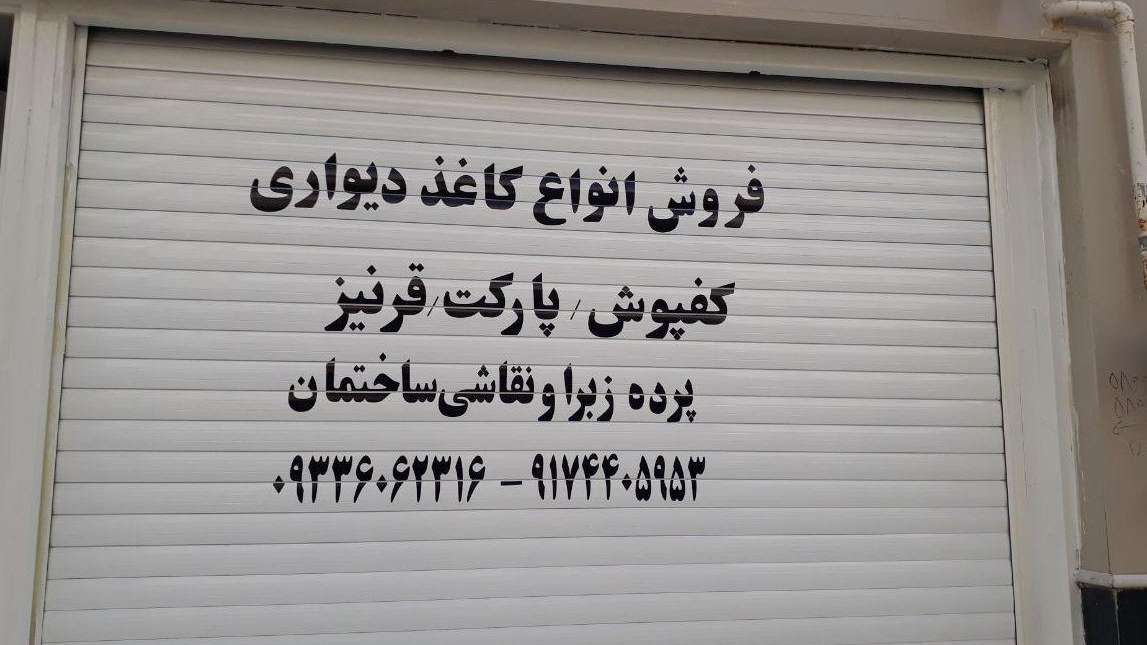 فروش انواع کاغذ دیواری
کفپوش / پارکت/قرنیز
پرده زبرا و نقاشی ساختمان
۰۹۳۳۶۰۶۲۳۱۶ – ۹۱۷۴۴۰۵۹۵۳